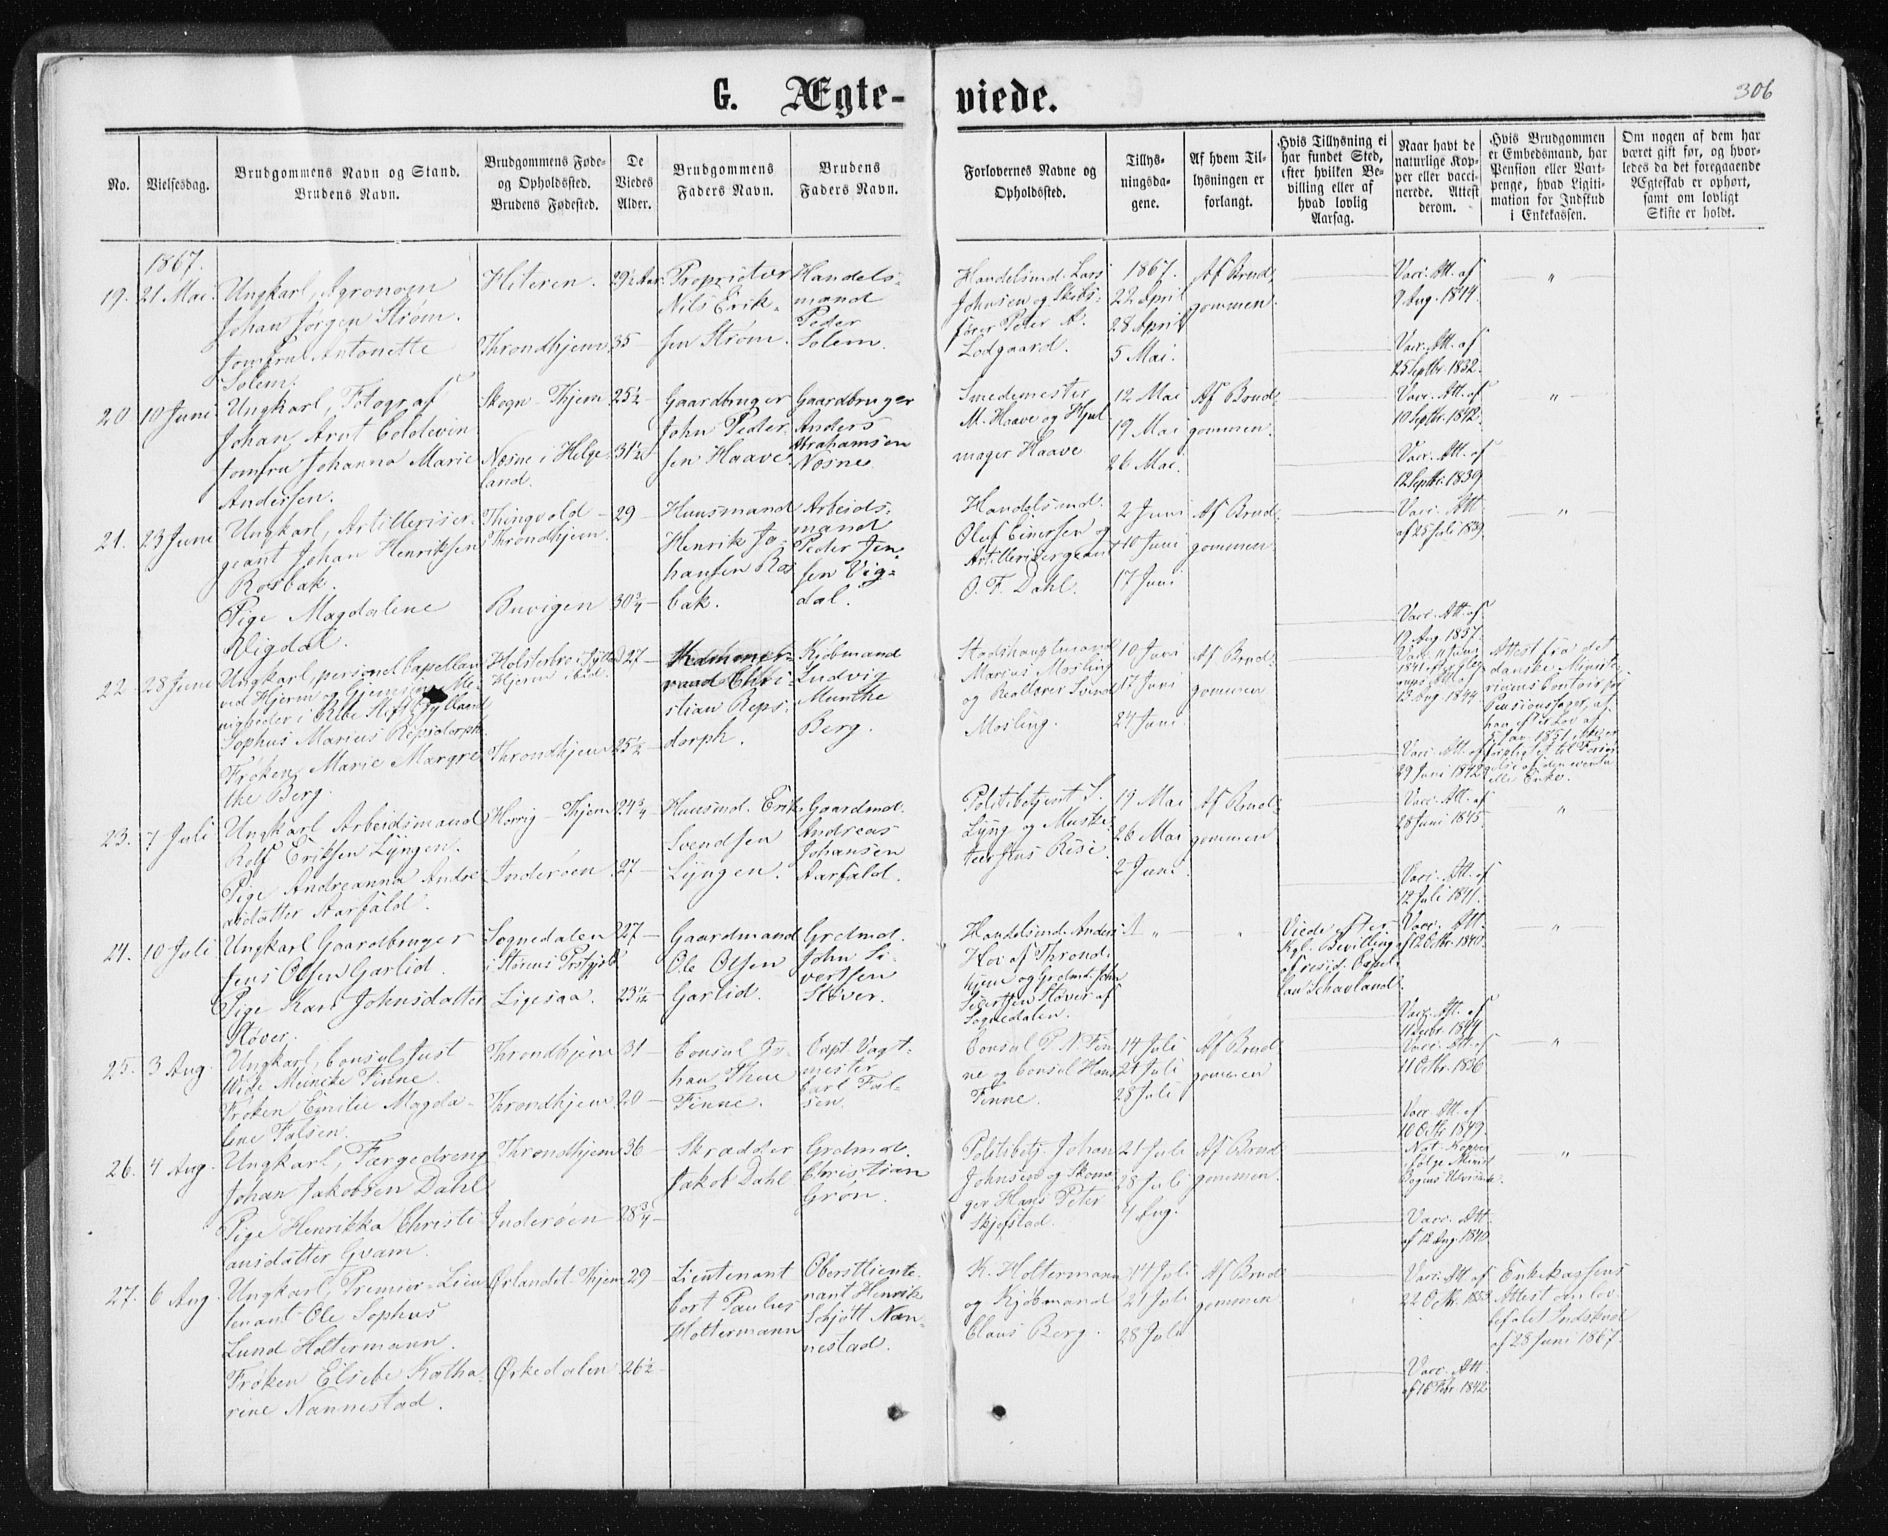 G. Ægte-
viede.
306
No.
Vielsesdag.
Brudgommens Navn og Stand.
Brudens Navn.
Brudgommens Føde-
og Opholdssted.
Brudens Fødested.
De
Viedes
Alder.
Brudgommens
Faders Navn.
Brudens
Faders Navn.
Forlovernes Navne og
Opholdssted.
Tillys-
ningsda-
gene.
Af hvem Til-
lysningen er
forlangt.
Hvis Tillysning ei
har fundet Sted,
efter hvilken Be-
villing eller af
hvad lovlig
Aarsag.
Naar havt de
naturlige Kop-
per eller vacci-
nerede. Attest
derom.
Hvis Brudgommen
er Embedsmand, har
Pension eller Vart-
penge, hvad Ligiti-
mation for Indskud
i Enkekassen.
Om nogen af dem har
været gift før, og hvor-
ledes da det foregaaende
Ægteskab er ophørt,
samt om lovligt
Skifte er holdt.
1867.
19. 21 Mai.
Ungkarl, Agronom
Johan Jørgen Strøm.
Jomfru Antonette
Solem.
Hiteren.
Throndhjem
29½ Aar
35
Proprietær
Nils Erik-
sen Strøm.
Handels-
mand
Peder
Solem.
Handelsmd. Lars
Johnsen og Skibs-
fører Peter A.
Lodgaard.
1867.
22 April
28 April
5 Mai.
Af Brud-
gommen
Vacc. Att. af
9 Aug. 1844
Vacc. Att. af
25 Septbr. 1832
20 10 Juni
Ungkarl, Fotograf
Johan Arnt Coldevin
Jomfru Johanna Marie
Andersen.
Skogn - Thjem
Næsne i Helge-
land.
25½
31½
Gaardbruger
John Peder-
sen Haave
Gaardbruger
Anders
Abrahamsen
Næsne.
Smedemester
M. Haave og Hjul-
mager Haave
12 Mai
19 Mai
26 Mai.
Af Brud-
gommen.
Vacc. Att. af
10 Septbr. 1842.
Vacc. Att. af
12 Septbr. 1839
21. 23 Juni
Ungkarl, Artilleriser-
geant Johan Henriksen
Rosbak.
Pige Magdalene
Vigdal.
Thingvold -
Throndhjem.
Buvigen
29
30¾
Huusmand
Henrik Jo-
hansen Ros-
bak.
Arbeids-
mand
Peder Jen-
sen Vig-
dal.
Handelsmd.
Oluf Einersen og
Artillerisergeant
O. F. Dahl.
2 Juni
10 Juni
17 Juni
Af Brud-
gommen
Vacc. Att
af 25 Juli 1839
Vacc. Att. af
19 Aug. 1837.
22 28 Juni
Ungkarl, personel Capellan
ved Hjerm og Gjemsing Me-
nigheder i Ribe Stift Jylland
Sophus Marius Repsdorph
Frøken Marie Margre-
the Berg.
Holsterbro i Jylland
Hjerm ibid.
Throndhjem
27
25½
Kammer-
raad Chri-
stian Reps-
dorph.
Kjøbmand
Ludvig
Munthe
Berg.
Stadshauptmand
Marius Mosling
og Reallærer Svend
Mosling.
10 Juni
17 Juni
24 Juni
Af Brud-
gommen
13 Aug 1844
Vacc. Att. af
29 Juni 1842
Attest fra det
danske Ministe-
riums Contoir for
Pensionssager, at
han efter Lov af
5 Jan. 1851
Enke.
23. 7 Juli
Ungkarl Arbeidsmand
Rolf Eriksen Lyngen.
Pige Andreanna Andre-
asdatter Aarfald.
Horrig - Thjem
Inderøen
24¾
27
Huusmd. Erik
Svendsen
Lyngen.
Gaardmd.
Andreas
Johansen
Aarfald.
Politibetjent S.
Lyng og Muske-
teer Risi.
19 Mai
26 Mai
2 Juni
Af Brud-
gommen
Vacc. Att. af
28 Juni 1845
Vacc. Att. af
12 Juli 1841.
24. 10 Juli
Ungkarl Gaardbruger
Jens Olsen Garlid.
Pige Kari Johnsdatter
Støver.
Sognedalen
i Størens Prstgjeld
Ligesaa.
27
Gaardmand
Ole Olsen
Garlid.
Grdmd.
John Si-
vertsen
Støver.
Handelsmd. Anders
Hov af Thrond-
hjem og Grdmd. John
Sivertsen Støver af
Sognedalen.
Viede efter
Kgl. Bevilling
af resid. Capel-
lan Schavland.
Vacc. Att.
af 12 Octbr. 1840.
Vacc. Att. af
1844
25. 3 Aug.
Ungkarl, Consul Just
Wide Meincke Finne.
Frøken Emilie Magda-
lene Falsen.
Throndhjem
Throndhjem
31
20
Consul Jo-
han Thue
Finne.
Capt. Vagt-
mester
Carl Fal-
sen.
Consul P. N. Fin-
ne og Consul Hans
Finne.
14 Juli
21 Juli
28 Juli
Af Brud-
gommen
Vacc. Att. af
11 Octbr. 1836
Vacc. Att. af
10 Octbr 1849.
26. 4 Aug.
Ungkarl, Færgedreng
Johan Jakobsen Dahl
Pige Henrikka Christi-
ansdatter Gvam.
Throndhjem
Inderøen
36
28¾
Skrædder
Jakob Dahl
Grdmd.
Christian
Grøn.
Politibetj. Johan
Johnsen og Skoma-
ger Hans Peter
Skjefstad.
21 Juli
28 Juli
4 Aug.
Af Brud-
gommen.
Nat. Kopper
ifølge Minist.
Vacc. Att.
af 12 Aug. 1840
27. 6 Aug.
Ungkarl, Premier-Lieu-
tenant Ole Sophus
Lund Holtermann.
Frøken Elsebe Katha-
rine Nannestad.
Ørlandet - Thjem
Ørkedalen
29
26½
Lieutenant
Cort Paulus
Holtermann
Oberstlieute-
nant Henrik
Schjøtt Nan-
nestad.
K. Holtermann
og Kjøbmand
Claus Berg.
14 Juli
21 Juli
28 Juli
Af Brud-
gommen
Vacc. Att. af
22 Octbr. 1853
Vacc. Att.
af 16 Febr. 1842
Enkekassens
Attest om lov-
befalet Indskud
af 28 Juni 1867